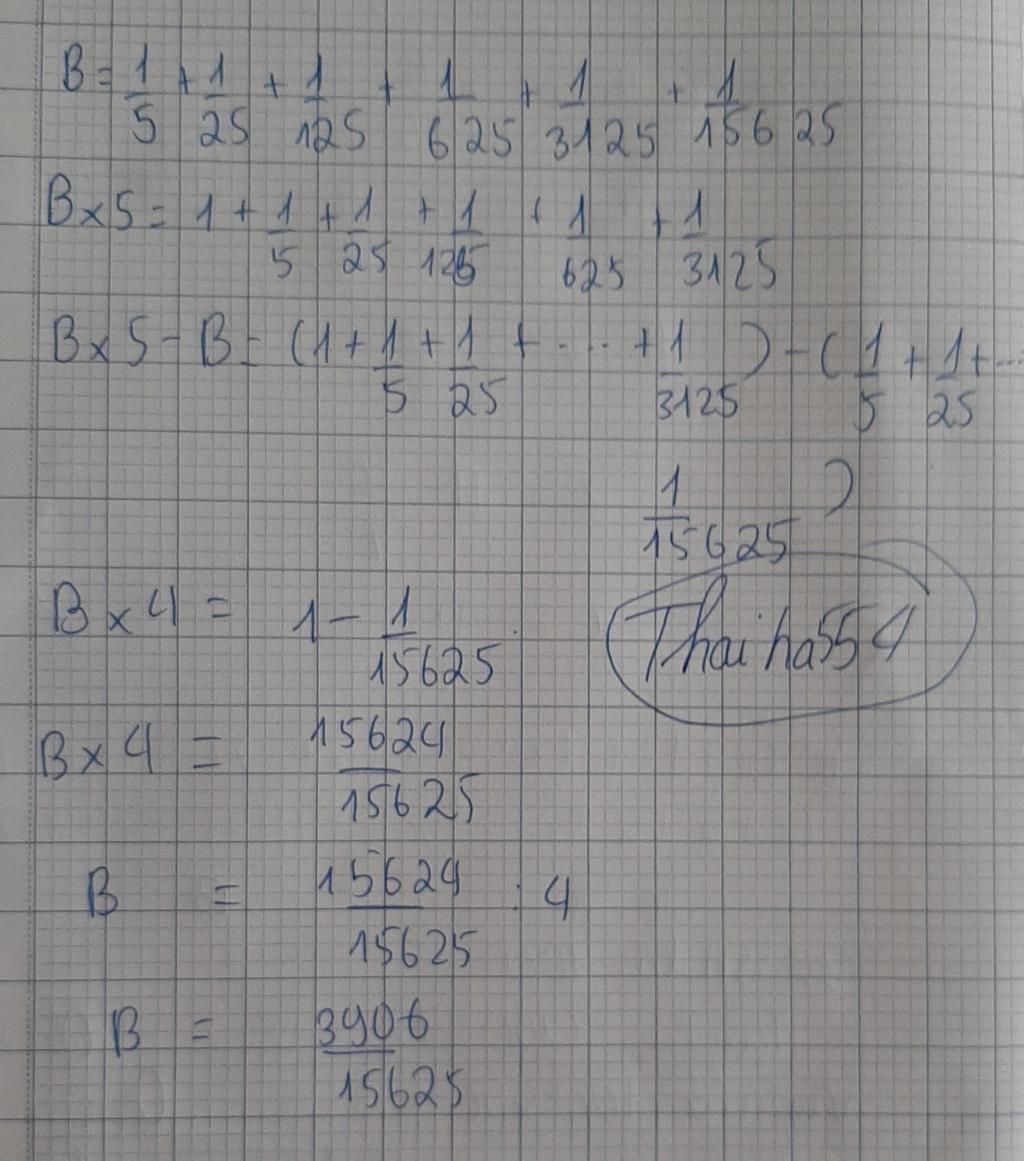 B = 1/5 + 1/25 + 1/125 + 1/625 + 1/3125 + 1/15625
B x 5 = 1 + 1/5 + 1/25 + 1/125 + 1/625 + 1/3125
B x 5 - B = (1 + 1/5 + 1/25 + ... + 1/3125) - (1/5 + 1/25 + ...
1/15625)
B x 4 = 1 - 1/15625
Thaiha554
B x 4 = 15624/15625
B = 15624/15625 : 4
B = 3906/15625